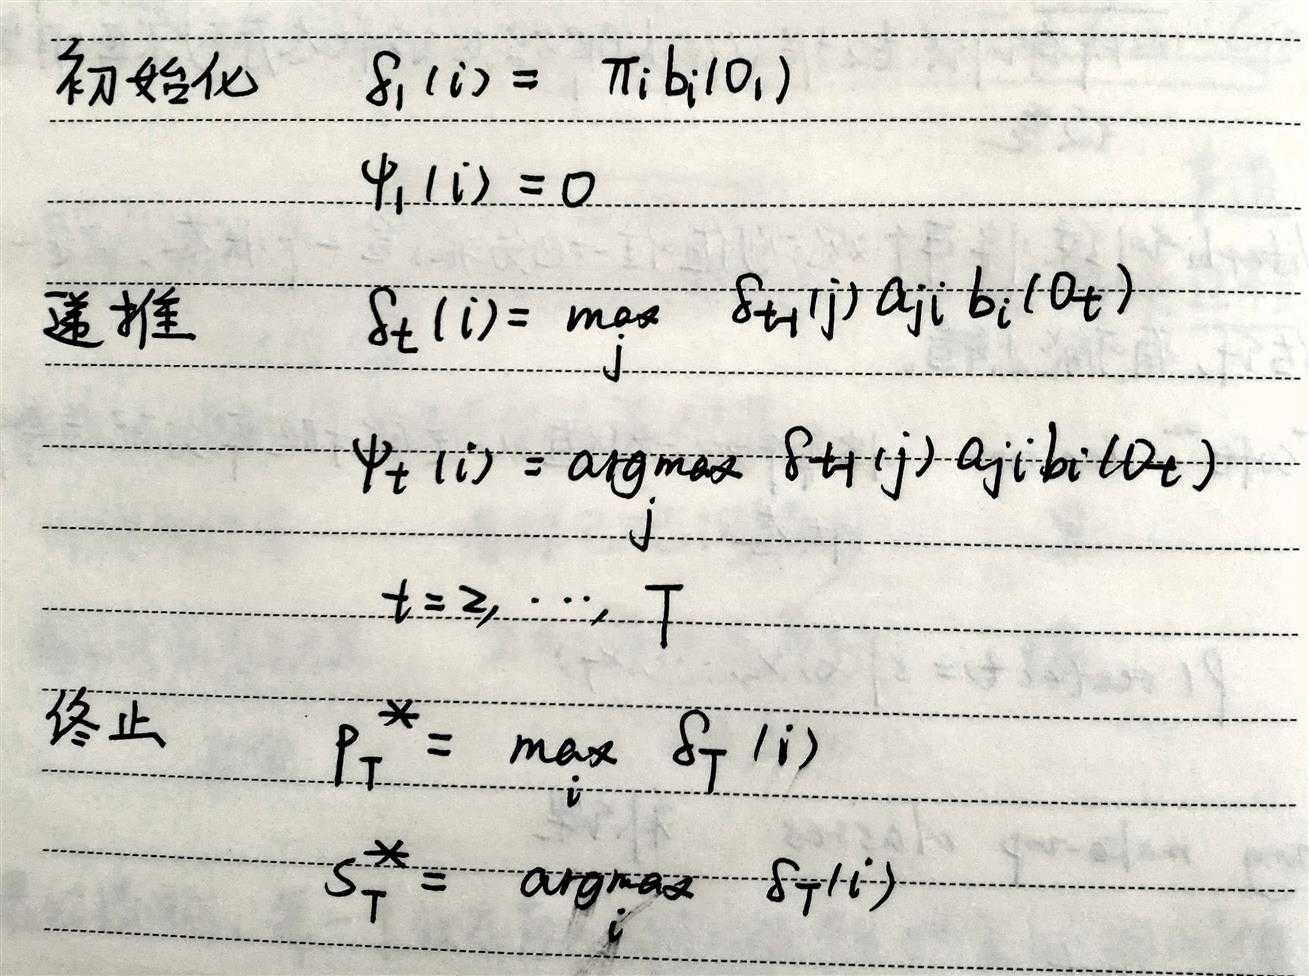 初始化 δ₁(i) = πᵢbᵢ(O₁)
ψ₁(i) = 0
递推 δₜ(i) = max δₜ₋₁(j) aⱼᵢ bᵢ(Oₜ)
j
ψₜ(i) = argmax δₜ₋₁(j) aⱼᵢ bᵢ(Oₜ)
j
t = 2, ⋯, T
终止 P_T* = max δ_T(i)
i
S_T* = argmax δ_T(i)
i